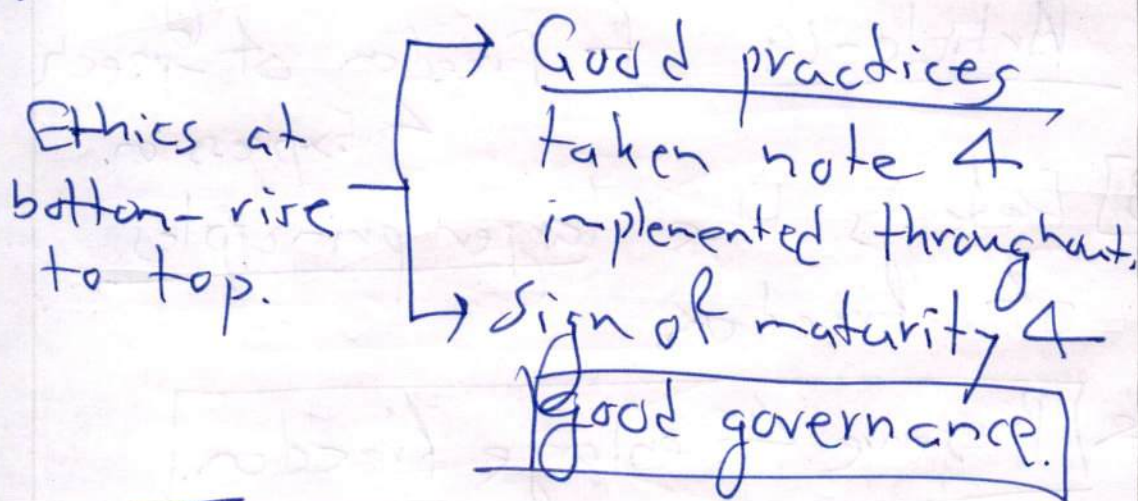 Ethics at
bottom - rise
to top.
Good practices
taken note &
implemented throughout.
Sign of maturity &
good governance.